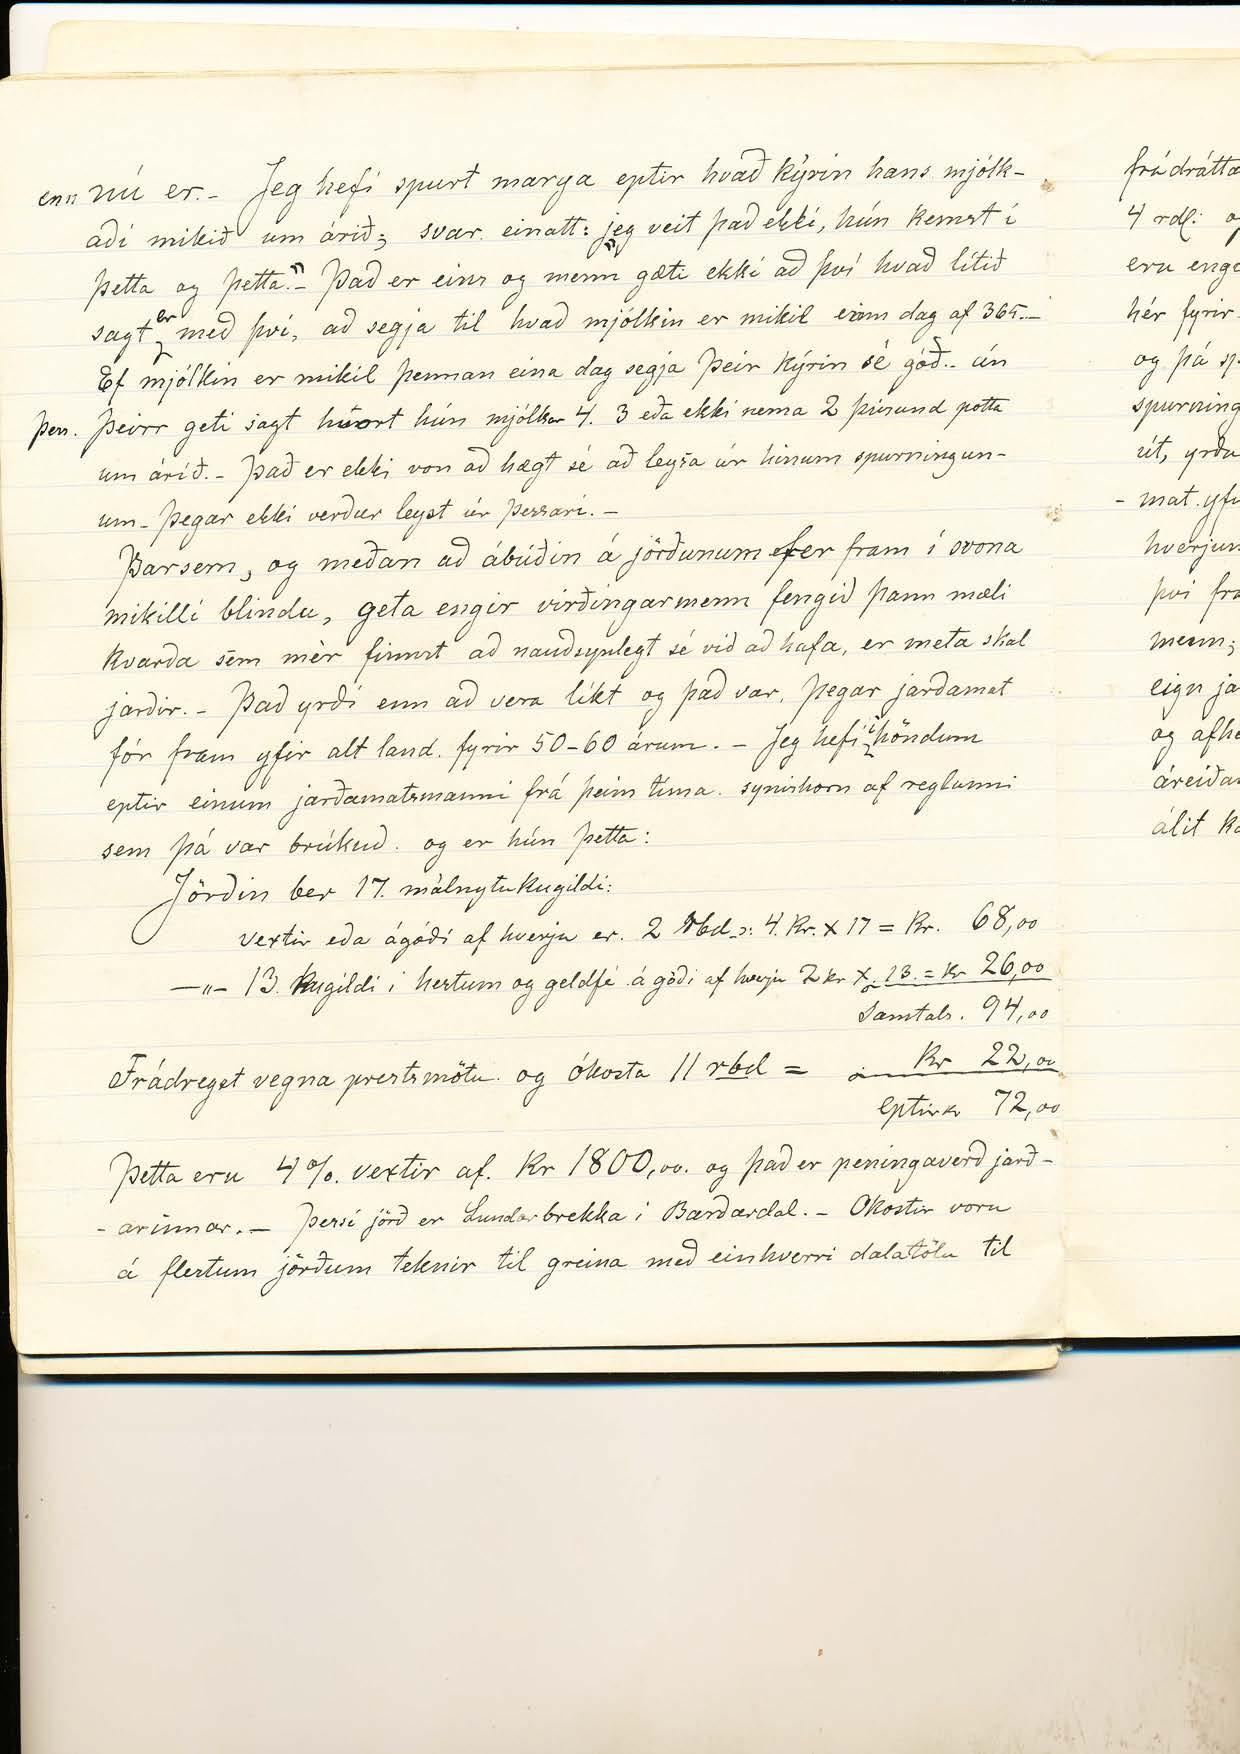 enn nú er. - Jeg hefi spurt marga eptir hvað kýrin hans mjólk-
aði mikið um árið; svar einatt: "jeg veit það ekki, hún kemst í
þetta og þetta." - Það er eins og menn gæti ekki að því hvað lítið
sagt er með því, að segja til hvað mjólkin er mikil einn dag af 365. -
Ef mjólkin er mikil þennan eina dag segja þeir kýrin sé góð. - án
þess. þeirr geti sagt hvort hún mjólkar 4. 3 eða ekki nema 2 þúsund potta
um árið. - Það er ekki von að hægt sé að leysa úr hinum spurningun-
um - þegar ekki verður leyst úr þessari. -
Þarsem, og meðan að ábúðin á jörðunum fer fram í svona
mikilli blindu, geta engir virðingarmenn fengið þann mæli
kvarða sem mèr finnst að nauðsynlegt sé við að hafa, er meta skal
jarðir. - Það yrði enn að vera líkt og það var, þegar jarðamat
fór fram yfir alt land. fyrir 50-60 árum. - Jeg hefi í höndum
eptir einum jarðamatsmanni frá þeim tíma. synishorn af reglunni
sem þá var brúkuð. og er hún þetta:
Jörðin ber 17. málnytukugildi:
vextir eða ágóði af hverju er. 2 rbd ɔ: 4. Kr. x 17 = Kr. 68,00
—„— 13. kugildi i hestum og geldfé ágóði af hverju 2 kr x 13. = kr 26,00
Samtals. 94,00
Frádregst vegna prestsmötu og ókosta 11 rbd = Kr 22,00
eptir kr 72,00
Þetta eru 4%. vextir af. Kr 1800,00. og það er peningaverð jarð-
-arinnar. - þessi jörð er Lundarbrekka i Bárðardal. - Okostir voru
á flestum jörðum teknir til greina með einhverri dalatölu til
frádrátta
4 rdl: o
eru enge
hér fyrir
og þá sp
spurning
út, yrðu
-mat. yfi
hverjum
því fra
menn;
eign ja
og afhe
áreiðan
álit ka